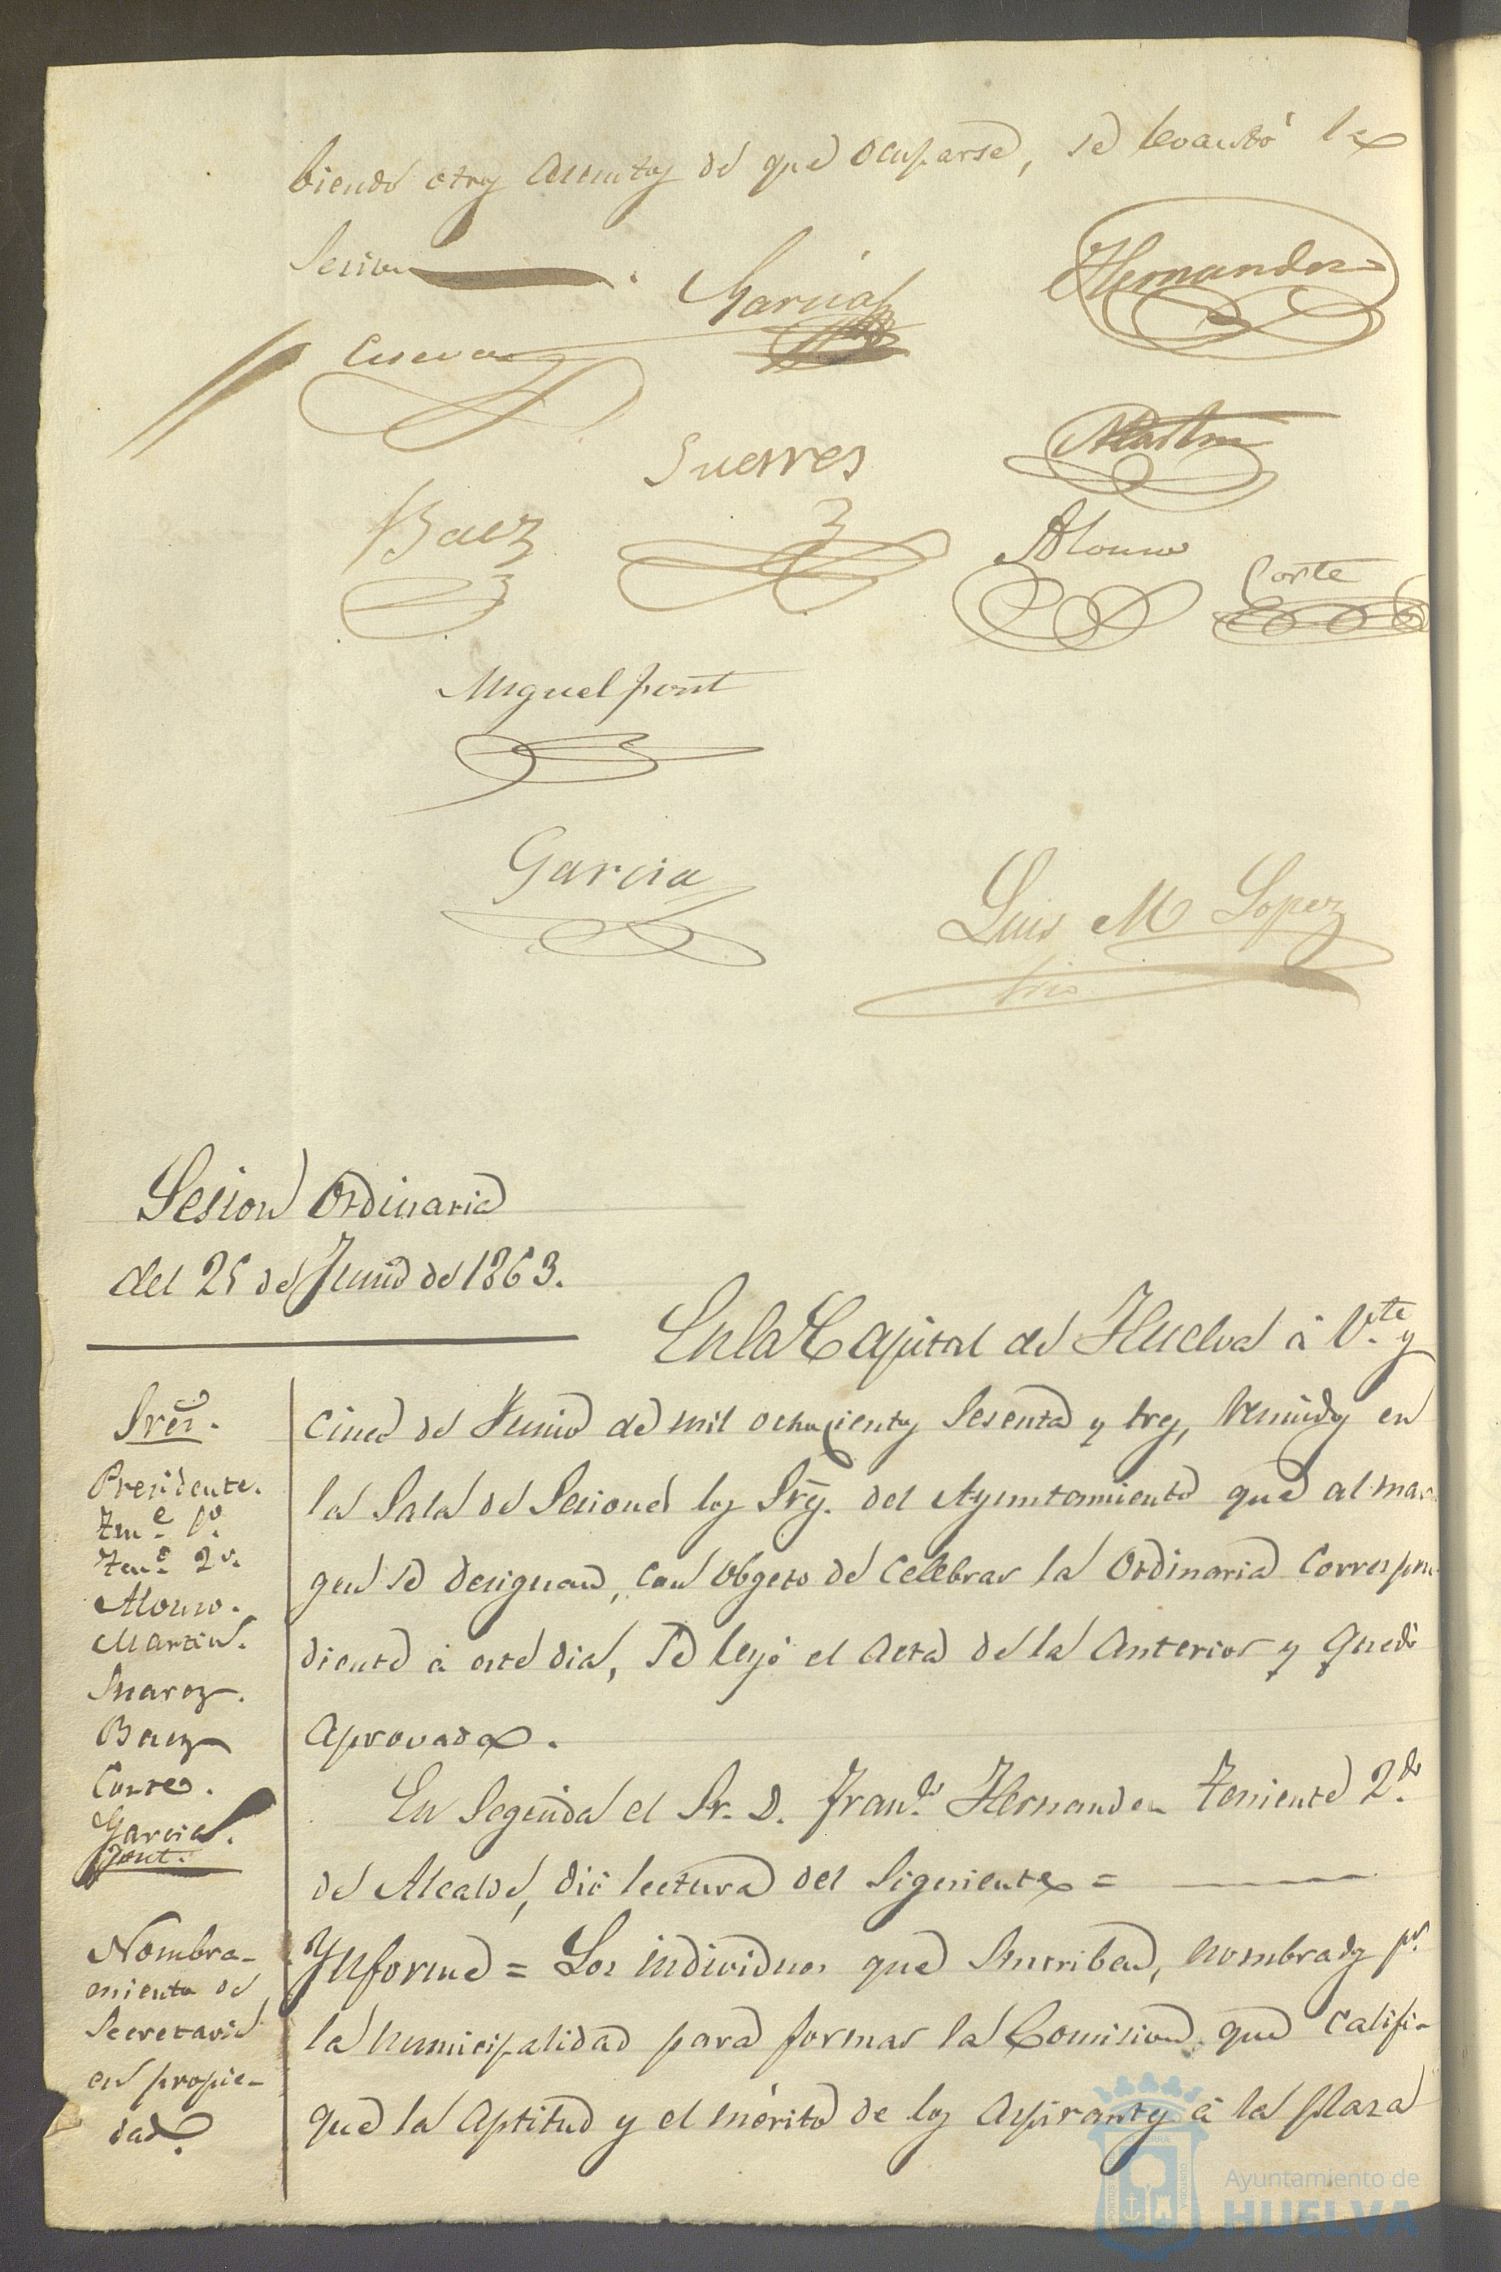 biendo otros asuntos de que ocuparse, se levantó la
Sesion.
Garcia
Hernandez
Cueva
Suerres
Martin
Baez
Alonso
Corte
Miguel Pont
Garcia
Luis M Lopez
Srio
Sesion Ordinaria
del 25 de Junio de 1863.
En la Capital de Huelva á Vte y
cinco de Junio de mil ochocientos sesenta y tres, reunidos en
la Sala de Sesiones los Sres. del Ayuntamiento que al mar-
gen se designan, con obgeto de celebrar la Ordinaria correspon-
diente á este dia, se leyó el acta de la anterior y quedó
aprovada.
En Segida el Sr. D. Franco Hernandez Teniente 2do
de Alcalde, dió lectura del Sigeriente =
Ynforme = Los individuos que Suscriben, nombrados pr
la municipalidad para formar la Comision que califi-
que la aptitud y el mérito de los aspirantes á la plaza
Sres.
Presidente.
Tnte 1o
Tnte 2o
Alonso.
Martin.
Suarez.
Baez
Corte.
Garcia.
Pont.
Nombra-
miento de
Secretario
en propie-
dad.
Ayuntamiento de
HUELVA